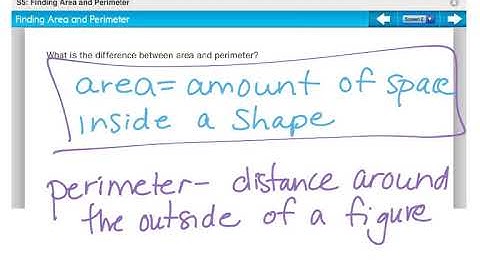 S5: Finding Area and Perimeter
Finding Area and Perimeter
What is the difference between area and perimeter?
area= amount of space
inside a shape
perimeter- distance around
the outside of a figure